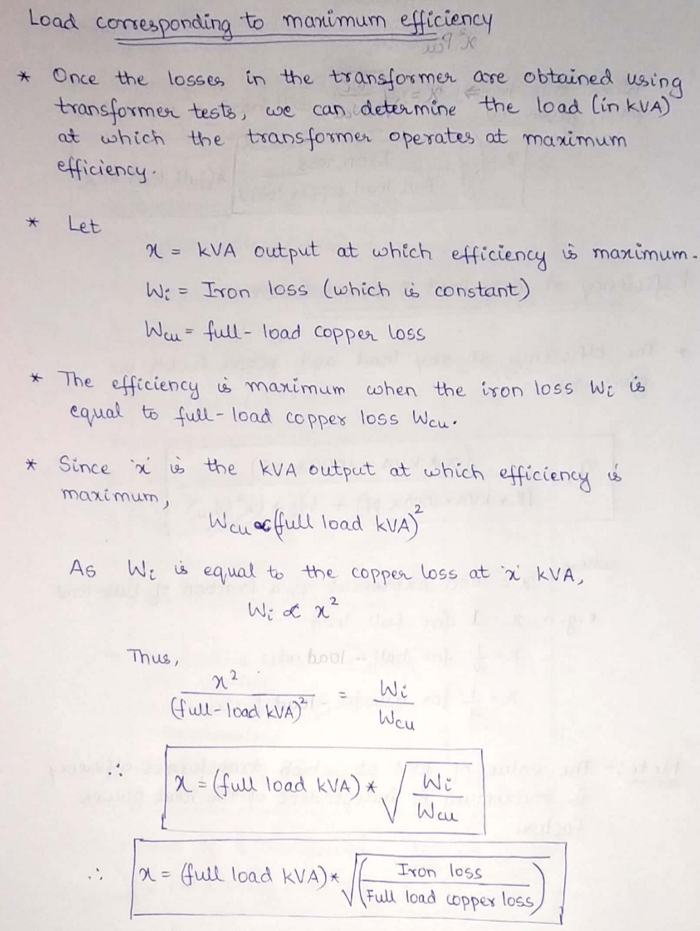 Load corresponding to maximum efficiency
* Once the losses in the transformer are obtained using
transformer tests, we can determine the load (in kVA)
at which the transformer operates at maximum
efficiency.
* Let
x = kVA output at which efficiency is maximum.
Wi = Iron loss (which is constant)
Wcu = full-load copper loss
* The efficiency is maximum when the iron loss Wi is
equal to full-load copper loss Wcu.
* Since 'x' is the kVA output at which efficiency is
maximum,
Wcu ∝ (full load kVA)²
As Wi is equal to the copper loss at 'x' kVA,
Wi ∝ x²
Thus,
x² / (full-load kVA)² = Wi / Wcu
∴ x = (full load kVA) * √(Wi / Wcu)
∴ x = (full load kVA) * √(Iron loss / Full load copper loss)